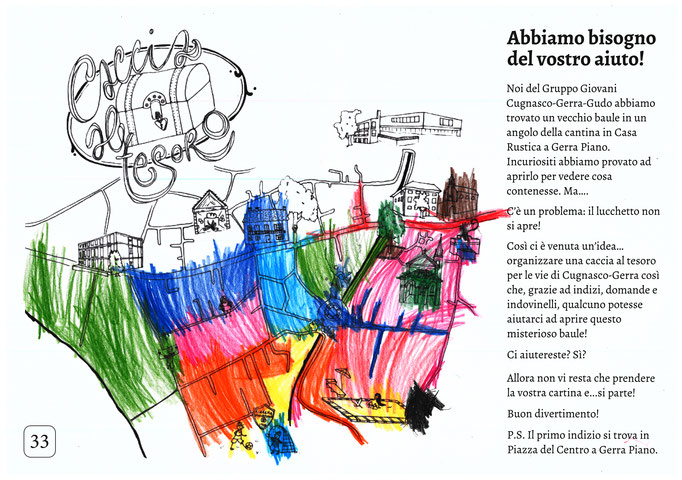 Caccia
al
tesoro
Abbiamo bisogno
del vostro aiuto!
Noi del Gruppo Giovani
Cugnasco-Gerra-Gudo abbiamo
trovato un vecchio baule in un
angolo della cantina in Casa
Rustica a Gerra Piano.
Incuriositi abbiamo provato ad
aprirlo per vedere cosa
contenesse. Ma....
C'è un problema: il lucchetto non
si apre!
Così ci è venuta un'idea...
organizzare una caccia al tesoro
per le vie di Cugnasco-Gerra così
che, grazie ad indizi, domande e
indovinelli, qualcuno potesse
aiutarci ad aprire questo
misterioso baule!
Ci aiutereste? Sì?
Allora non vi resta che prendere
la vostra cartina e...si parte!
Buon divertimento!
P.S. Il primo indizio si trova in
Piazza del Centro a Gerra Piano.
33